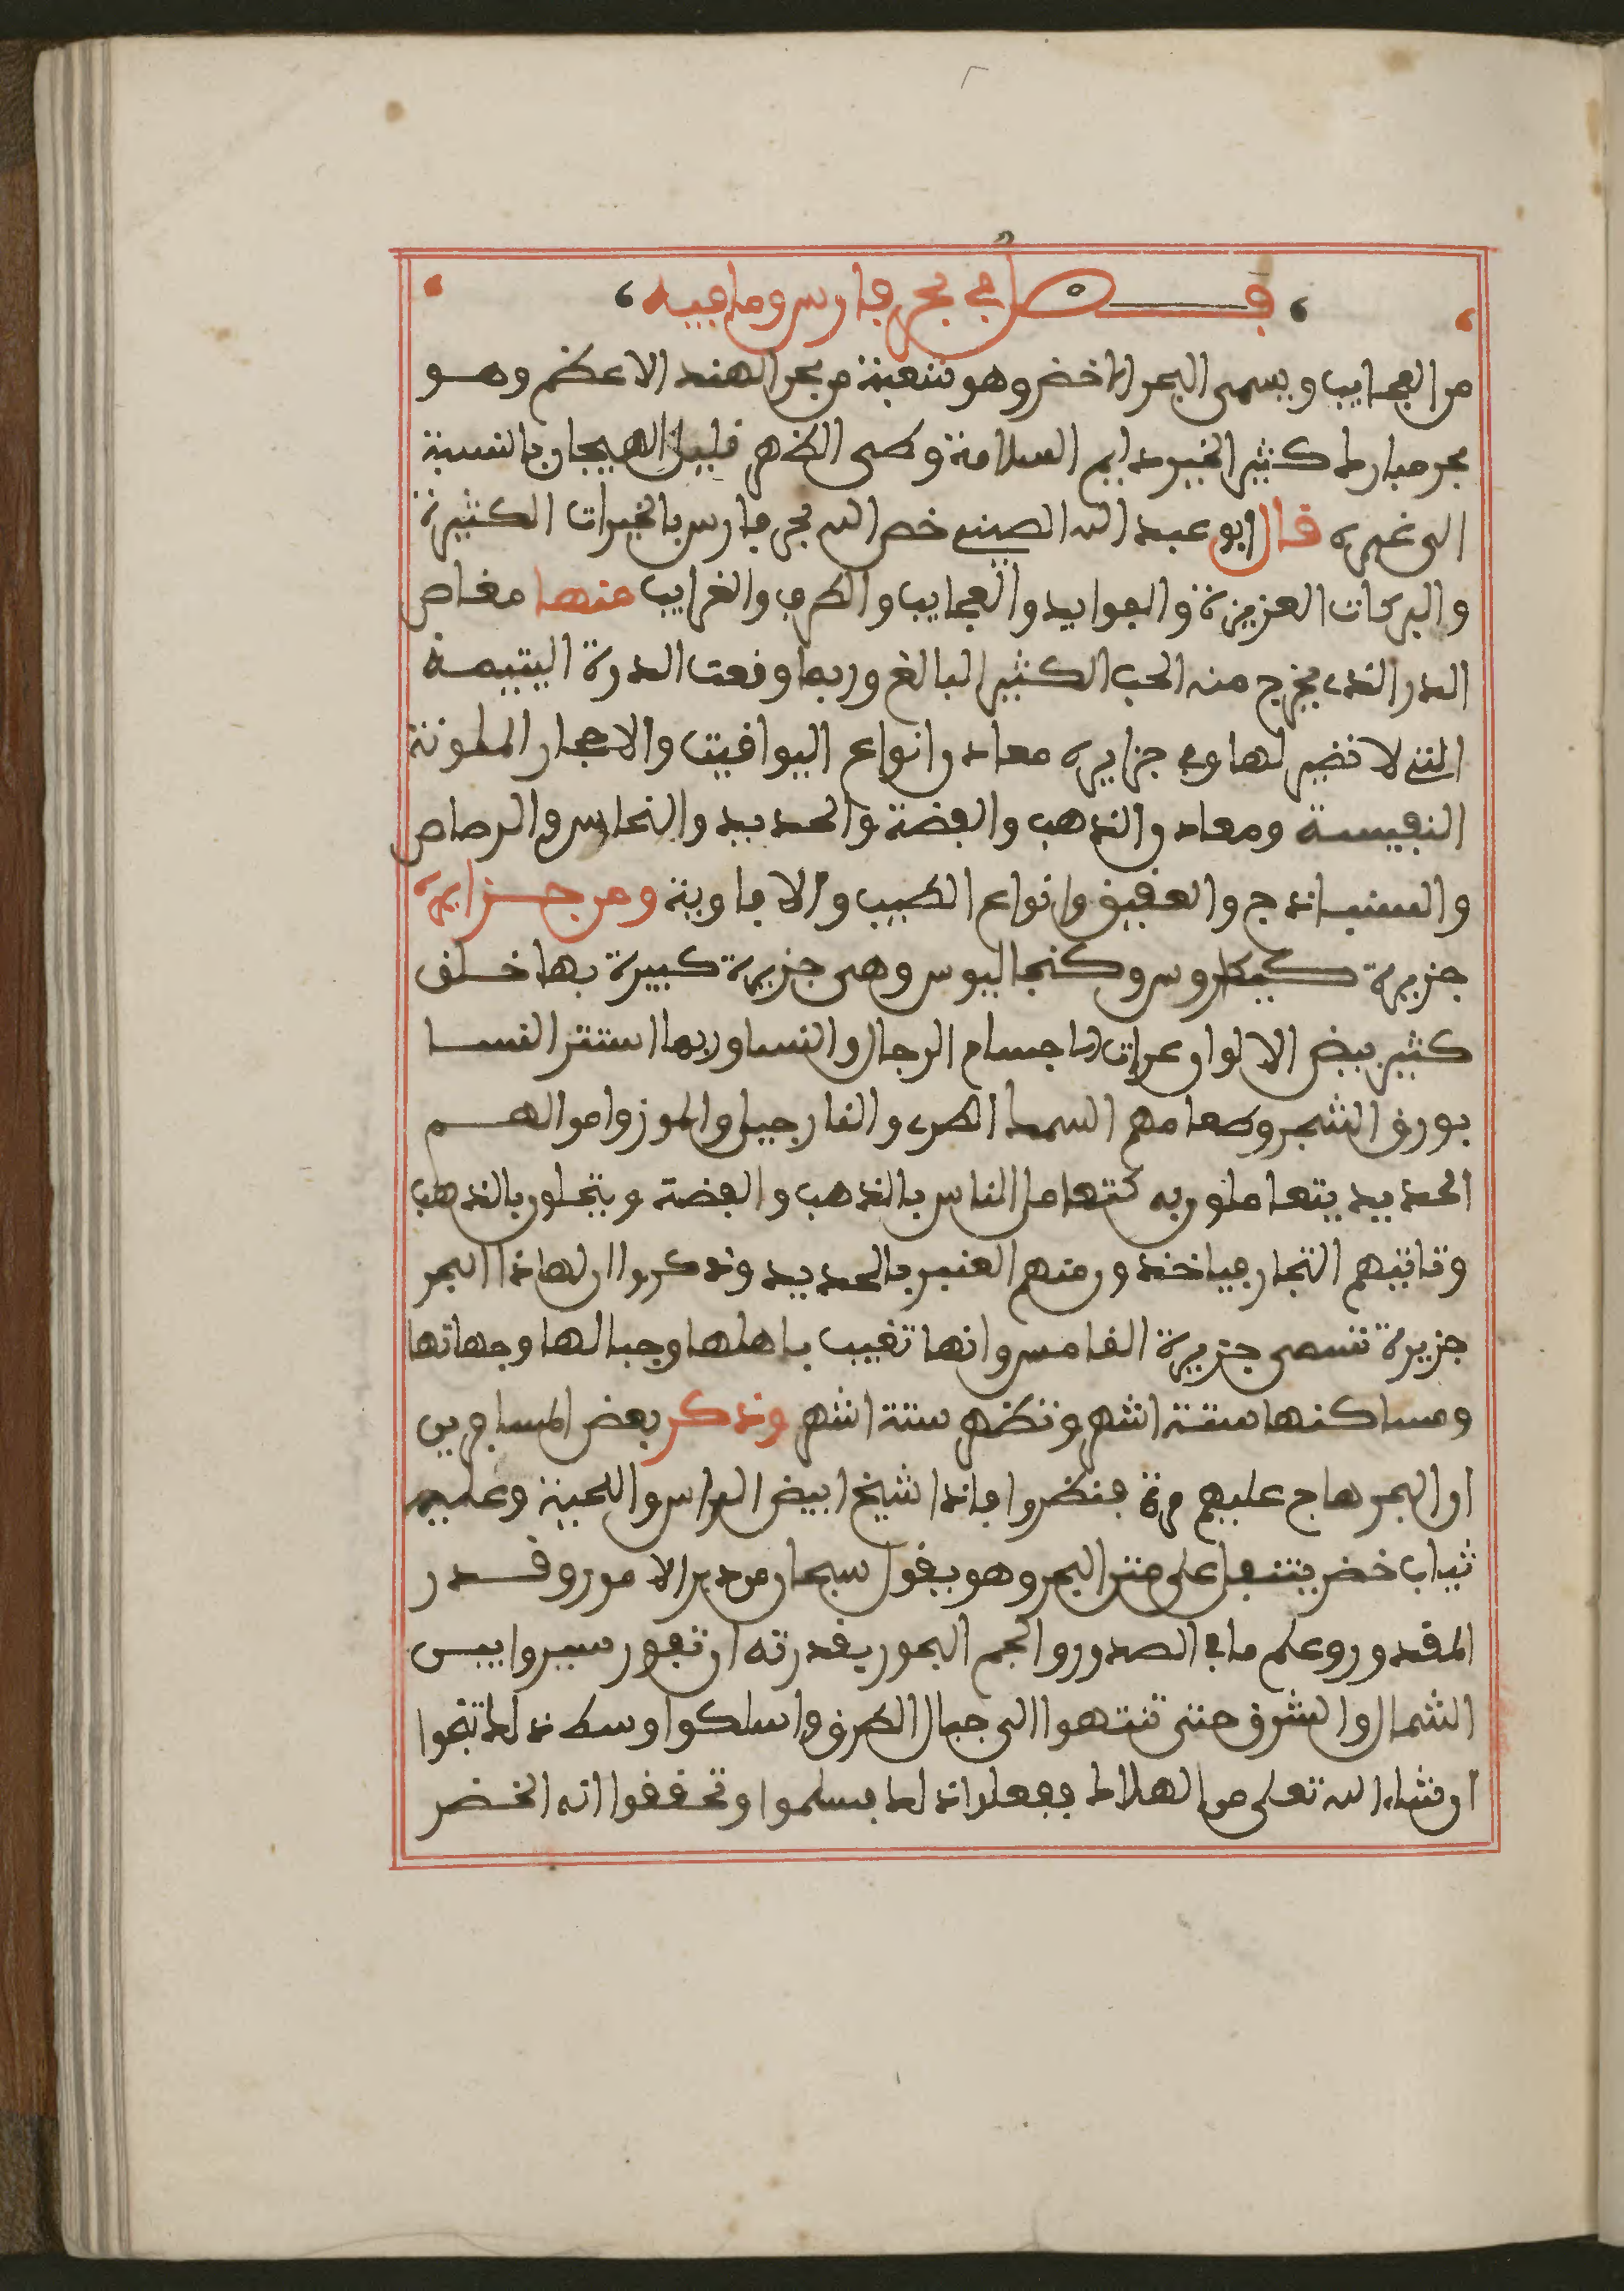 فصل في بحر فارس وما فيه
من العجايب ويسمى البحر الاخضر وهو شعبة من بحر الهند الاعظم وهو
بحر مبارك كثير الخير دايم السلامة وطي الظهر قليل الهيجان بالنسبة
الى غيره قال ابو عبد الله الصيني خص الله بحر فارس بالخيرات الكثيرة
والبركات العزيزة والفوايد والعجايب والطرف والغرايب منها مغاص
الدر الذي يخرج منه الحب الكثير البالغ وربما وقعت الدرة اليتيمة
التي لا نضير لها وفي جزايره معادن انواع اليواقيت والاحجار الملونة
النفيسة ومعادن الذهب والفضة والحديد والنحاس والرصاص
والسنباذج والعقيق وانواع الطيب والافاوية ومن جزايره
جزيرة كيكاوس وكنجاليوس وهي جزيرة كبيرة بها خلق
كثير بيض الالوان عرات الاجسام الرجال والنسا وربما استتر النسا
بورق الشجر وطعامهم السمك الطري والنارجيل والموز واموالهم
الحديد يتعاملون به كتعامل الناس بالذهب والفضة ويتحلون بالذهب
وتاتيهم التجار فياخذون منهم العنبر بالحديد وذكروا ان لهاذا البحر
جزيرة تسمى جزيرة القامس وانها تغيب باهلها وجبالها وجهاتها
ومساكنها ستة اشهر وتظهر ستة اشهر وذكر بعض المسافرين
ان البحر هاج عليهم مرة فنظروا فاذا شيخ ابيض الراس واللحية وعليه
ثياب خضر يتنقل على متن البحر وهو يقول سبحان من دبر الامور وقدر
المقدور وعلم ما في الصدور والجم البحور بقدرته ان تفور سيروا بين
الشمال والشرق حتى تنتهوا الى جبال الطرق واسلكوا وسط ذلك تنجوا
ان شاء الله تعلى من الهلاك ففعلوا ذلك فسلموا وتحققوا انه الخضر